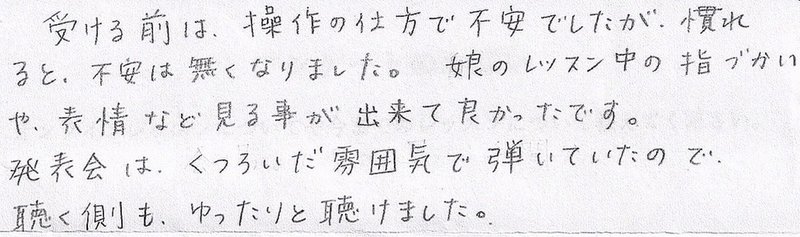 受ける前は、操作の仕方で不安でしたが、慣れ
ると、不安は無くなりました。 娘のレッスン中の指づかい
や、表情など見る事が出来て良かったです。
発表会は、くつろいだ雰囲気で弾いていたので、
聴く側も、ゆったりと聴けました。